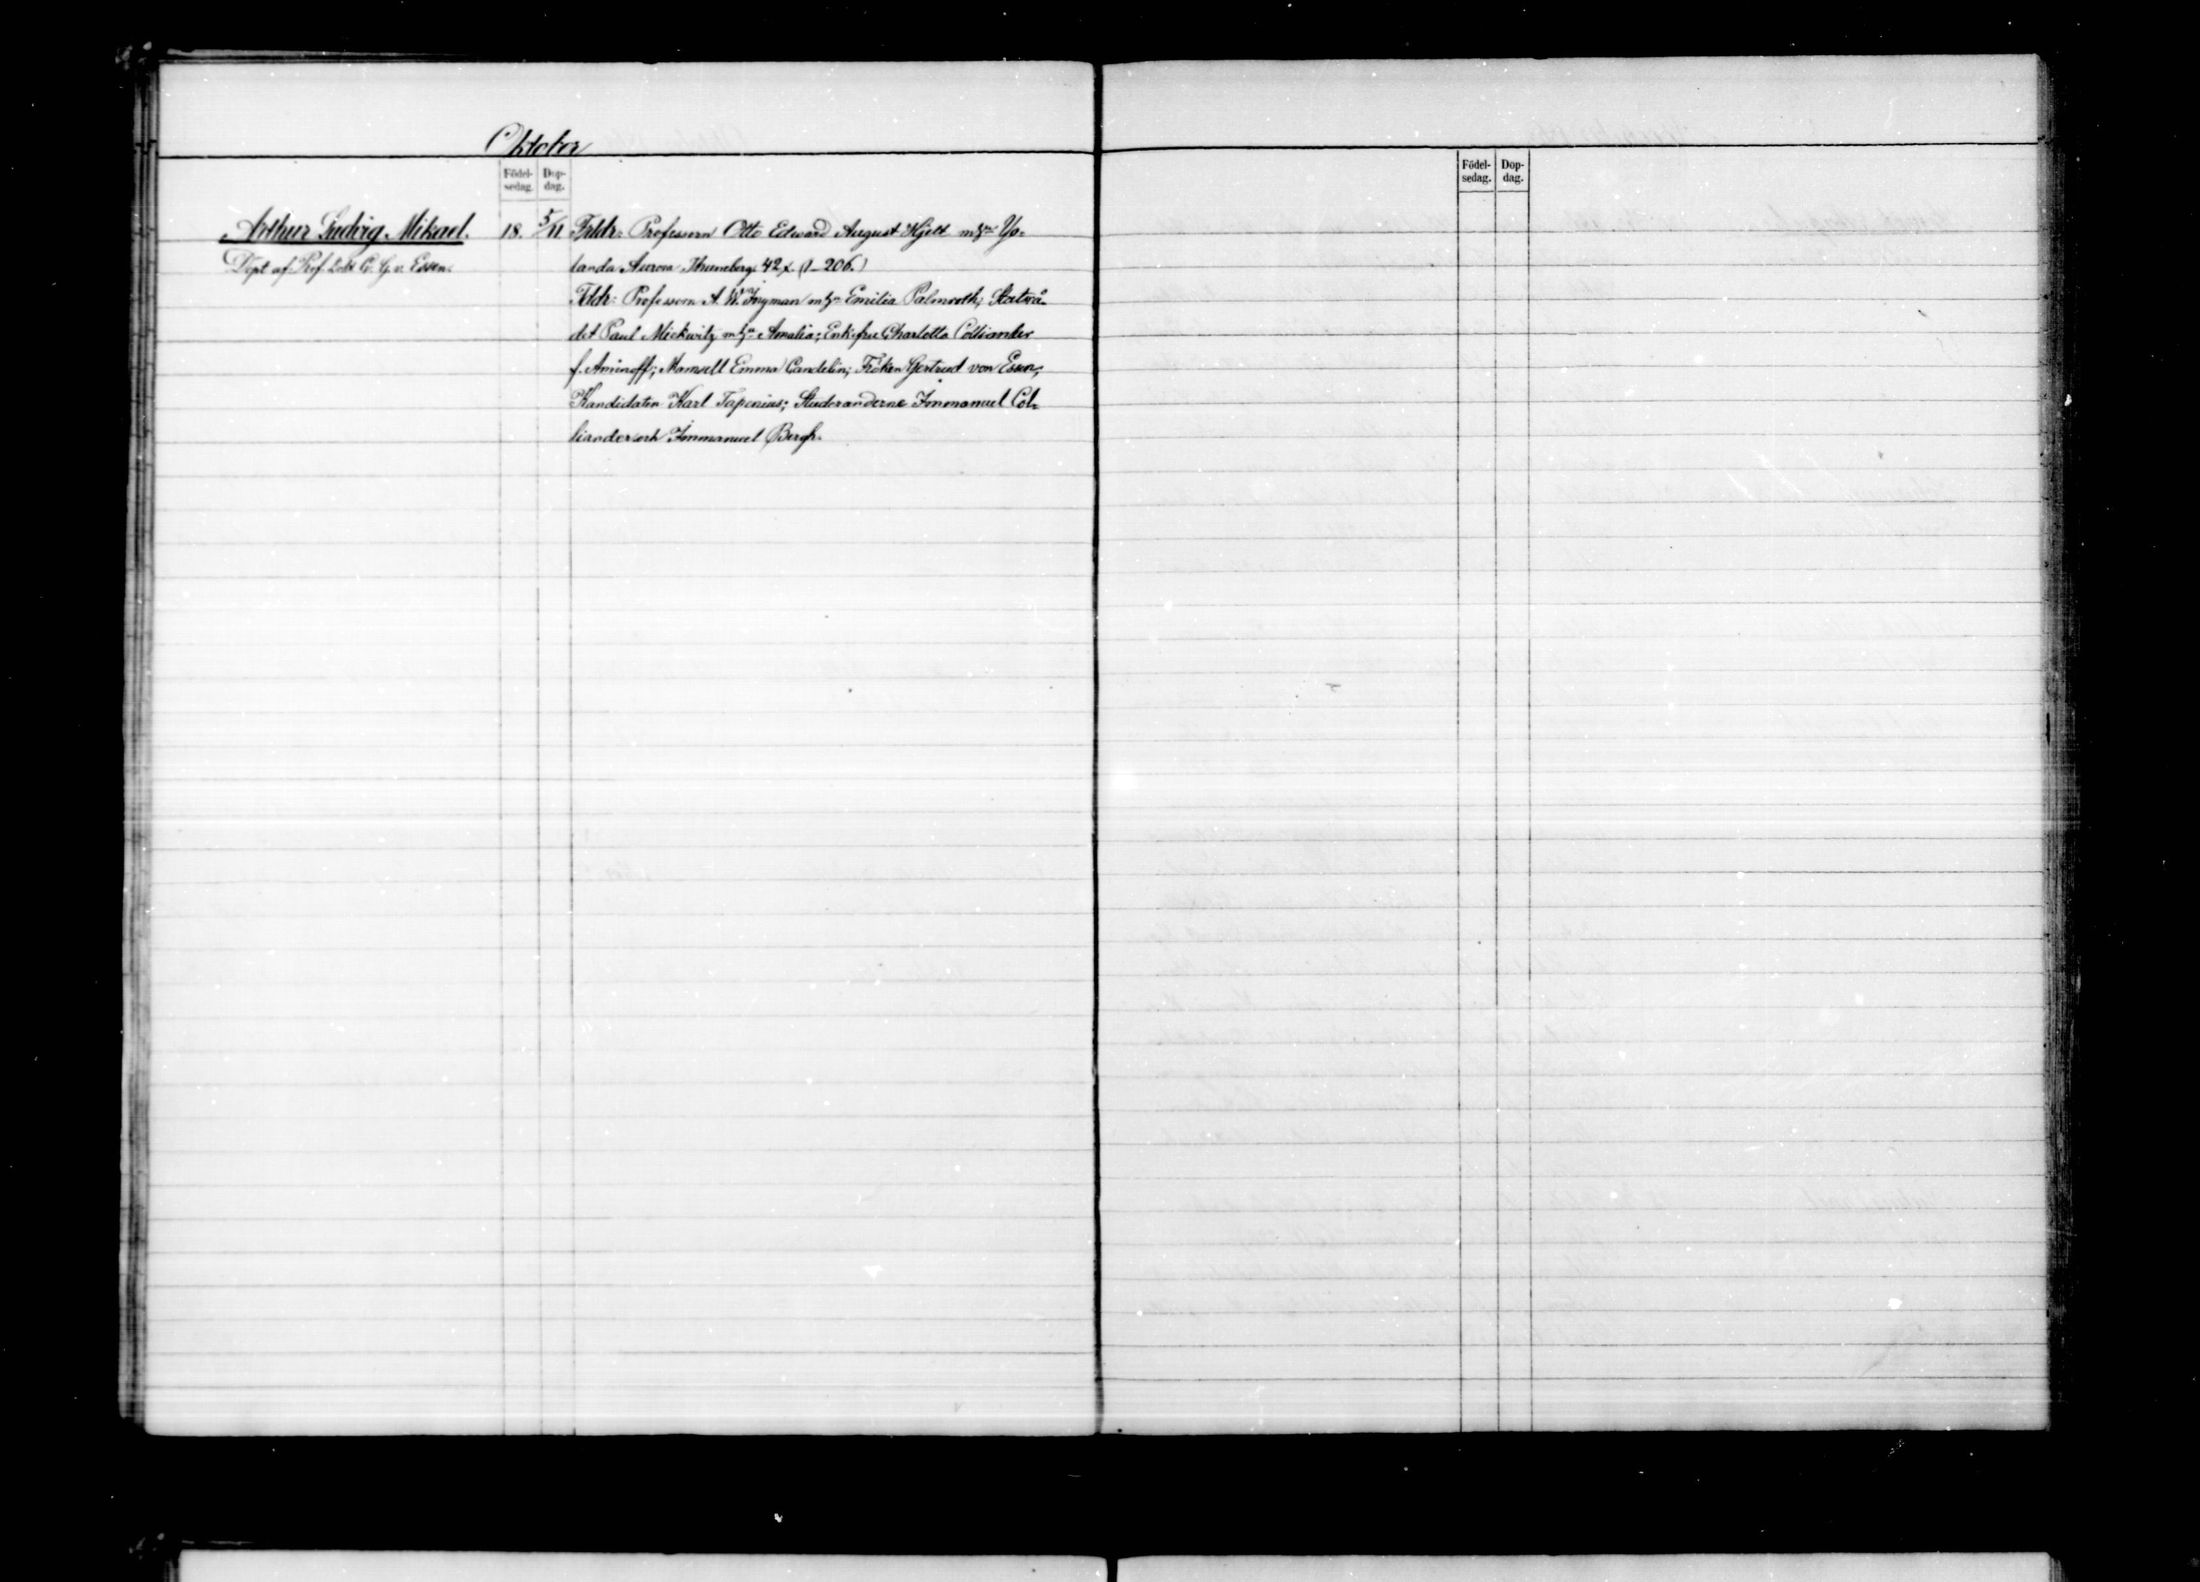 Oktober
Födel-
sedag.
Dop-
dag.
Arthur Ludvig Mikael. 18. 5/11 Frldr: Professorn Otto Edward August Hjelt m. hu Yo-
Döpt af Prof. C. G. v. Essen.
landa Aurora Thuneberg 42 x. (1-206.)
Fddr: Professorn A. W. Ingman m. hu Emilia Palmroth; Statsrå-
det Paul Mickwitz m. hu Amalia; Enkefru Charlotta Colliander
f. Aminoff; Mamsell Emma Candelin; Fröken Gertrud von Essen;
Kandidaten Karl Taponius; Studeranderne Immanuel Col-
liander och Immanuel Bergh.
Födel-
sedag.
Dop-
dag.